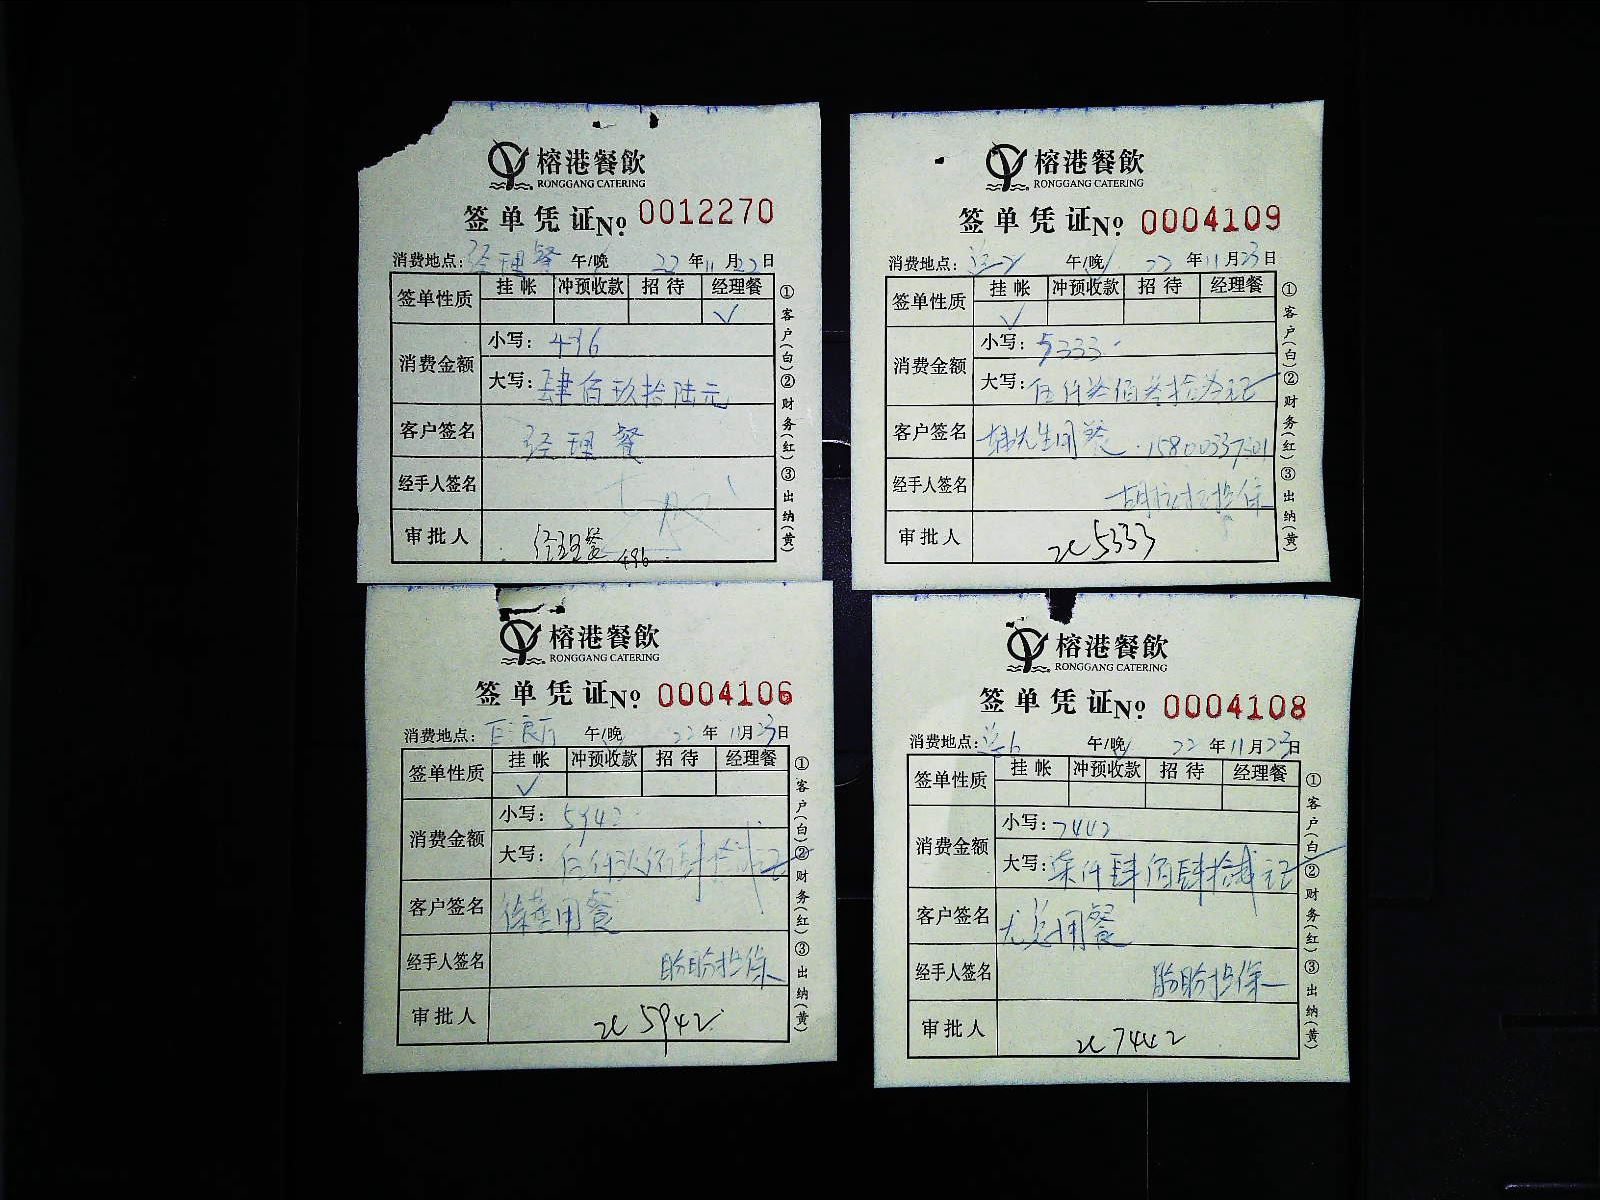 榕港餐飲
RONGGANG CATERING
签单凭证 No 0012270
消费地点: 经理餐 午/晚 22年11月22日
签单性质 挂帐 冲预收款 招待 经理餐
✓
消费金额 小写: 496
大写: 肆佰玖拾陆元
客户签名 经理餐
经手人签名
审批人 经理餐 496
①客户(白)②财务(红)③出纳(黄)
榕港餐飲
RONGGANG CATERING
签单凭证 No 0004109
消费地点: 午/晚 22年11月23日
签单性质 挂帐 冲预收款 招待 经理餐
✓
消费金额 小写: 5333
大写: 伍仟叁佰叁拾叁元正
客户签名 先生用餐
经手人签名 担保
审批人 5333
①客户(白)②财务(红)③出纳(黄)
榕港餐飲
RONGGANG CATERING
签单凭证 No 0004106
消费地点: 午/晚 22年11月23日
签单性质 挂帐 冲预收款 招待 经理餐
✓
消费金额 小写: 5942
大写:
客户签名 用餐
经手人签名 盼盼担保
审批人 5942
①客户(白)②财务(红)③出纳(黄)
榕港餐飲
RONGGANG CATERING
签单凭证 No 0004108
消费地点: 午/晚 22年11月23日
签单性质 挂帐 冲预收款 招待 经理餐
消费金额 小写: 7442
大写: 柒仟肆佰肆拾贰元正
客户签名 尤总用餐
经手人签名 盼盼担保
审批人 7442
①客户(白)②财务(红)③出纳(黄)